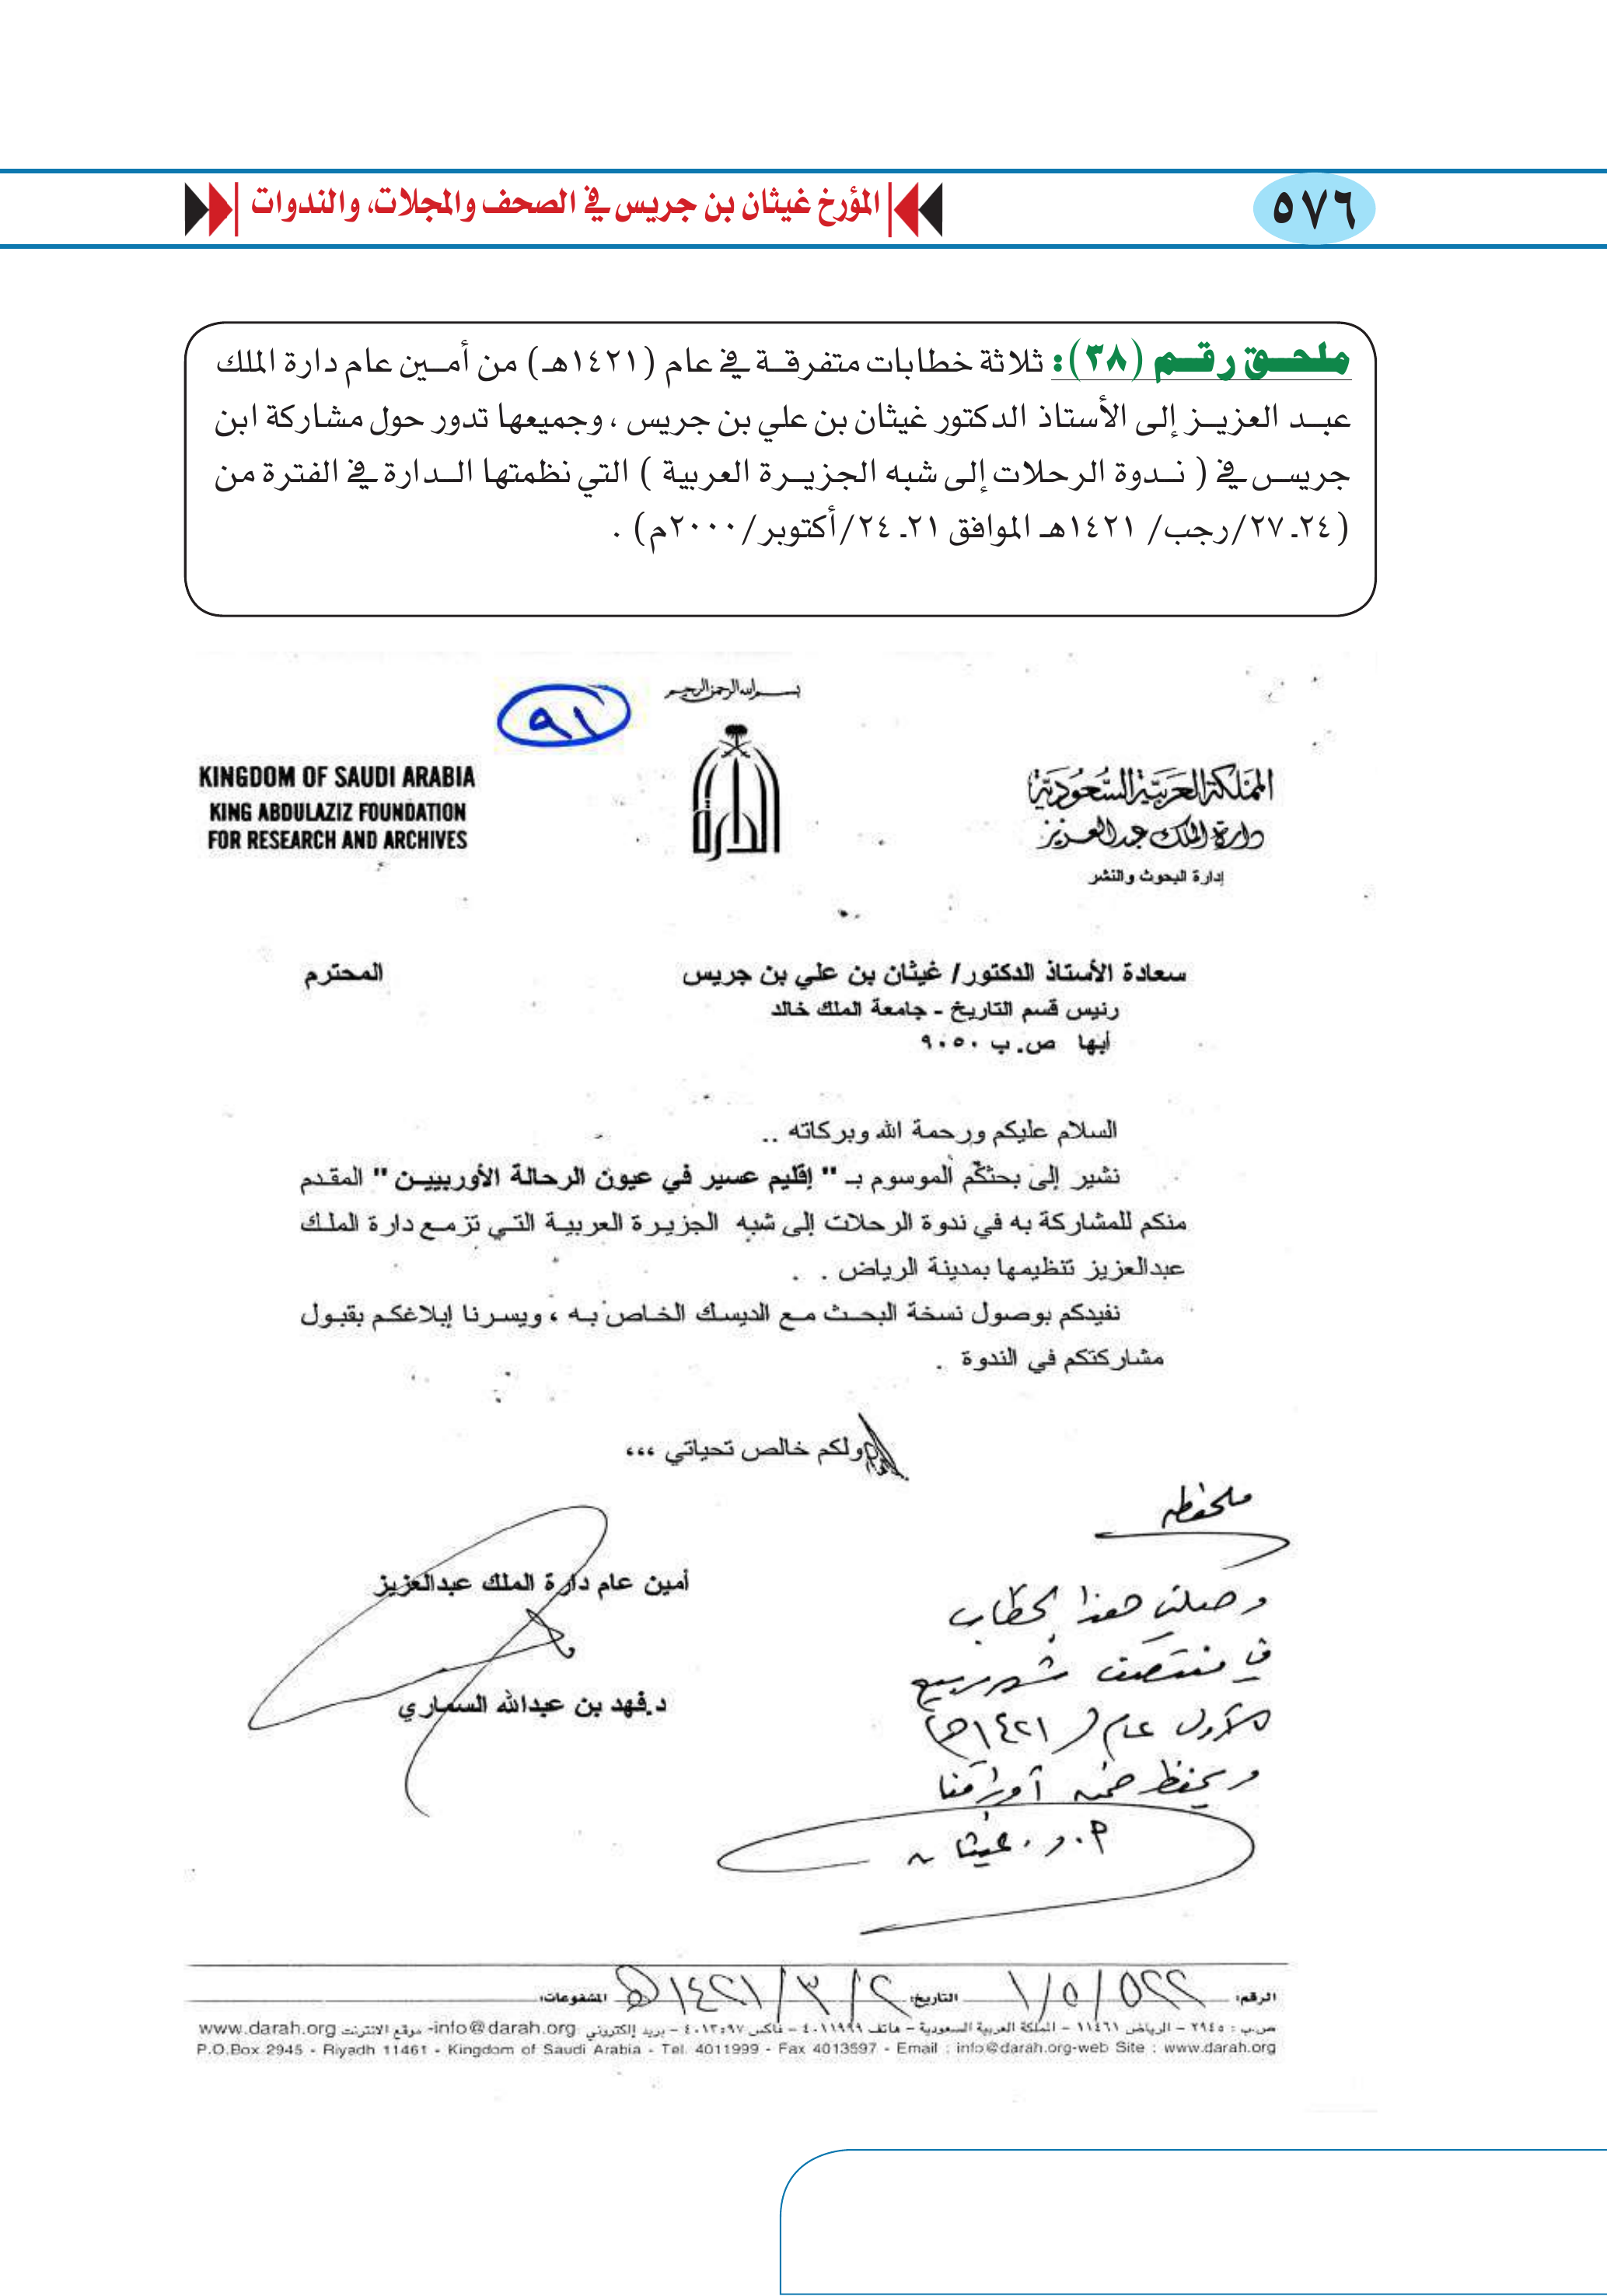 ٥٧٦
المؤرخ غيثان بن جريس في الصحف والمجلات، والندوات
ملحق رقم (٣٨): ثلاثة خطابات متفرقة في عام (١٤٢١هـ) من أمين عام دارة الملك
عبد العزيز إلى الأستاذ الدكتور غيثان بن علي بن جريس ، وجميعها تدور حول مشاركة ابن
جريس في ( ندوة الرحلات إلى شبه الجزيرة العربية ) التي نظمتها الدارة في الفترة من
( ٢٤ـ ٢٧/رجب/ ١٤٢١هـ الموافق ٢١ـ ٢٤/أكتوبر/٢٠٠٠م) .
بسم الله الرحمن الرحيم
٩١
الدارة
المملكة العربية السعودية
دارة الملك عبدالعزيز
إدارة البحوث والنشر
KINGDOM OF SAUDI ARABIA
KING ABDULAZIZ FOUNDATION
FOR RESEARCH AND ARCHIVES
سعادة الأستاذ الدكتور/ غيثان بن علي بن جريس المحترم
رئيس قسم التاريخ - جامعة الملك خالد
أبها ص.ب ٩٠٥٠
السلام عليكم ورحمة الله وبركاته ..
نشير إلى بحثكم الموسوم بـ " إقليم عسير في عيون الرحالة الأوربيين " المقدم
منكم للمشاركة به في ندوة الرحلات إلى شبه الجزيرة العربية التي تزمع دارة الملك
عبدالعزيز تنظيمها بمدينة الرياض .
نفيدكم بوصول نسخة البحث مع الديسك الخاص به ، ويسرنا إبلاغكم بقبول
مشاركتكم في الندوة .
ولكم خالص تحياتي ،،،
أمين عام دارة الملك عبدالعزيز
د.فهد بن عبدالله السماري
ملحظه
وصلني هذا الخطاب
في منتصف شهر ربيع
الأول عام (١٤٢١هـ)
ويحفظ ضمن أوراقنا
أ.د. غيثان
الرقم: ٥٢٢/٥/١ التاريخ: ٢/٣/١٤٢١هـ المشفوعات:
ص.ب : ٢٩٤٥ – الرياض ١١٤٦١ – المملكة العربية السعودية – هاتف ٤٠١١٩٩٩ – فاكس ٤٠١٣٥٩٧ – بريد إلكتروني info@darah.org- موقع الانترنت www.darah.org
P.O.Box 2945 - Riyadh 11461 - Kingdom of Saudi Arabia - Tel. 4011999 - Fax 4013597 - Email : info@darah.org-web Site : www.darah.org